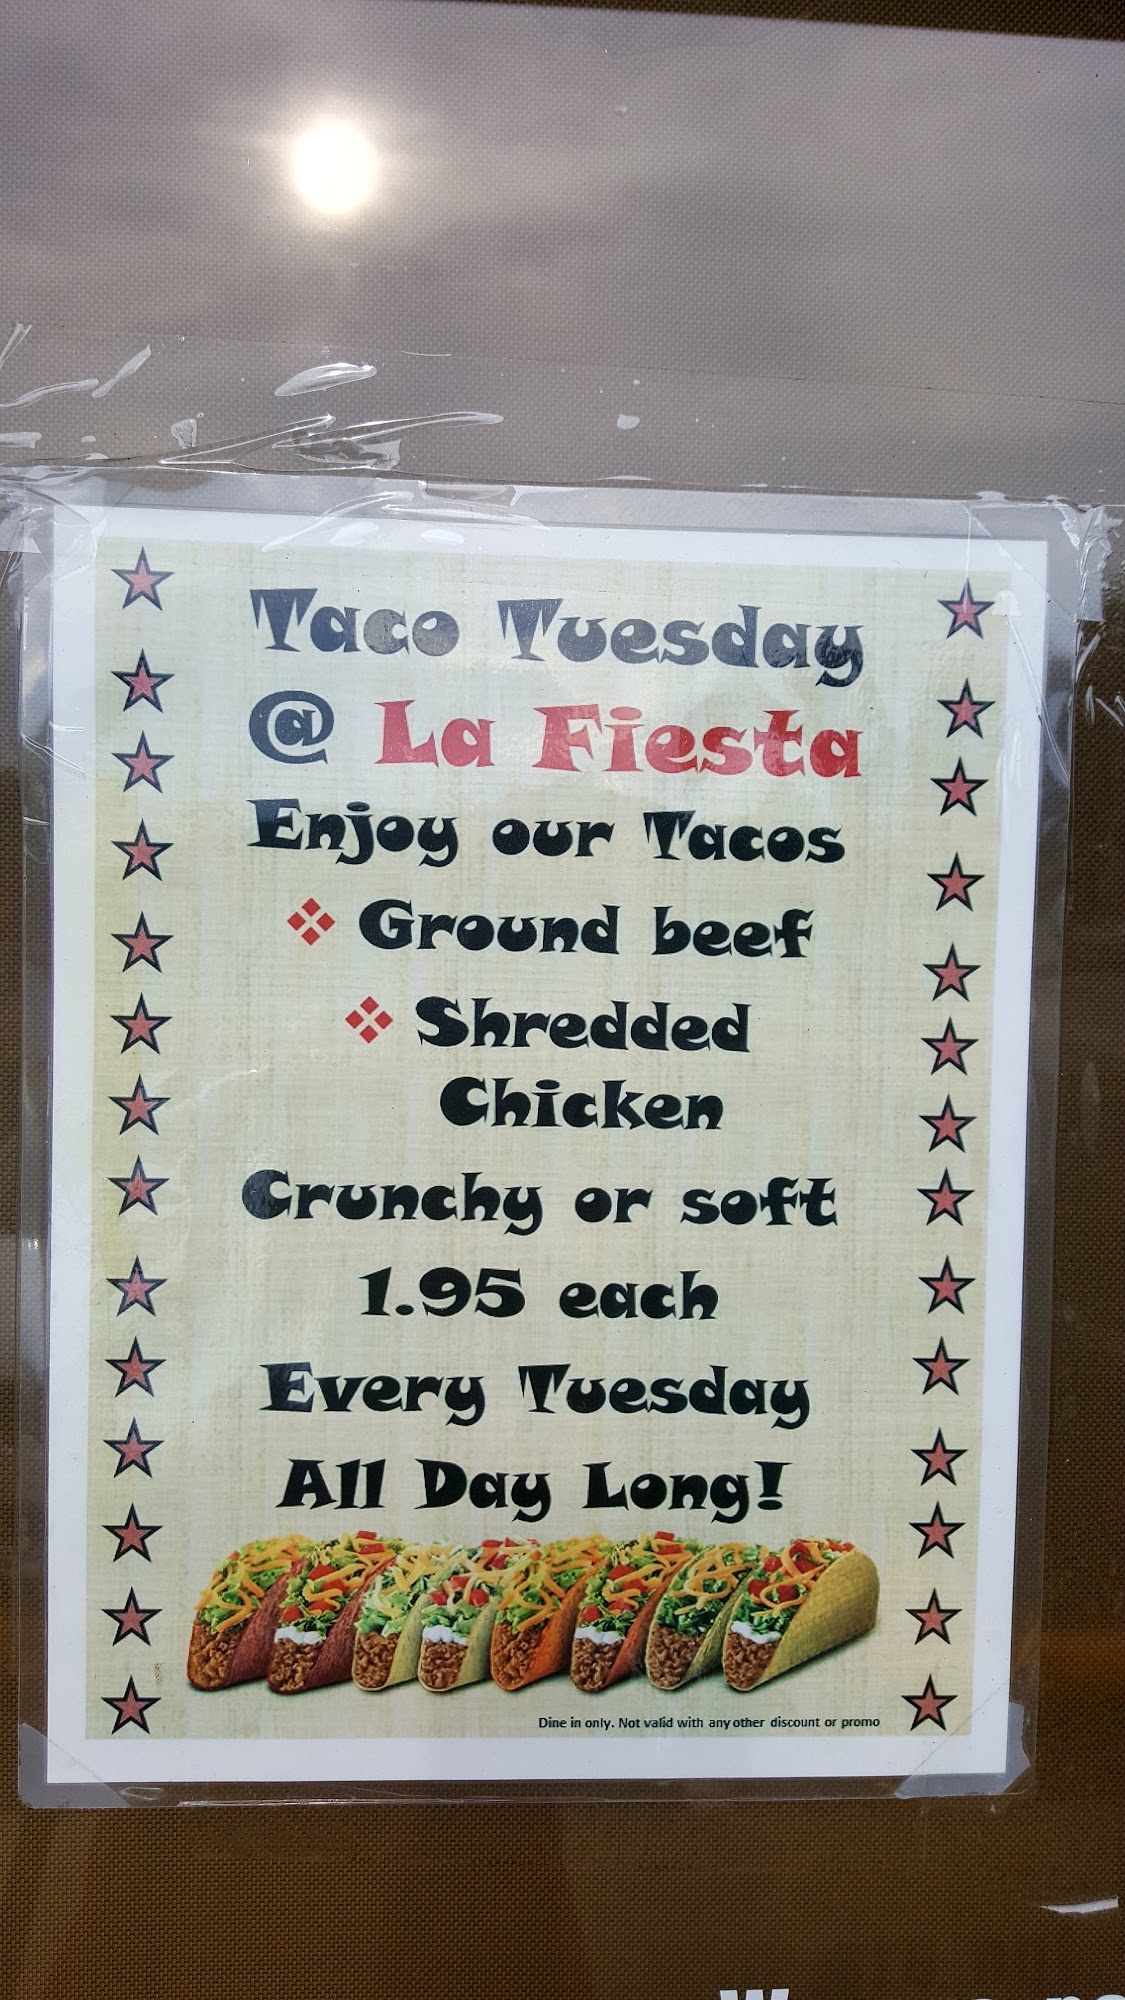 Taco Tuesday
@ La Fiesta
Enjoy our Tacos
❖ Ground beef
❖ Shredded
Chicken
Crunchy or soft
1.95 each
Every Tuesday
All Day Long!
Dine in only. Not valid with any other discount or promo